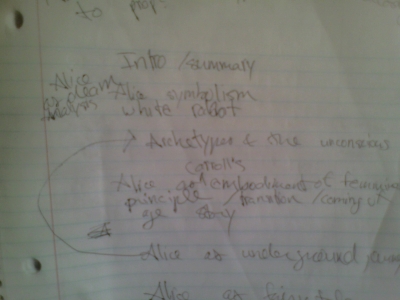 to prop
Intro / summary
Alice dream
Alice symbolism
white rabbit
Archetypes & the unconscious
Carroll's
Alice as embodiment of feminine
principle / transition / coming of
age story
Alice as underground
Alice as